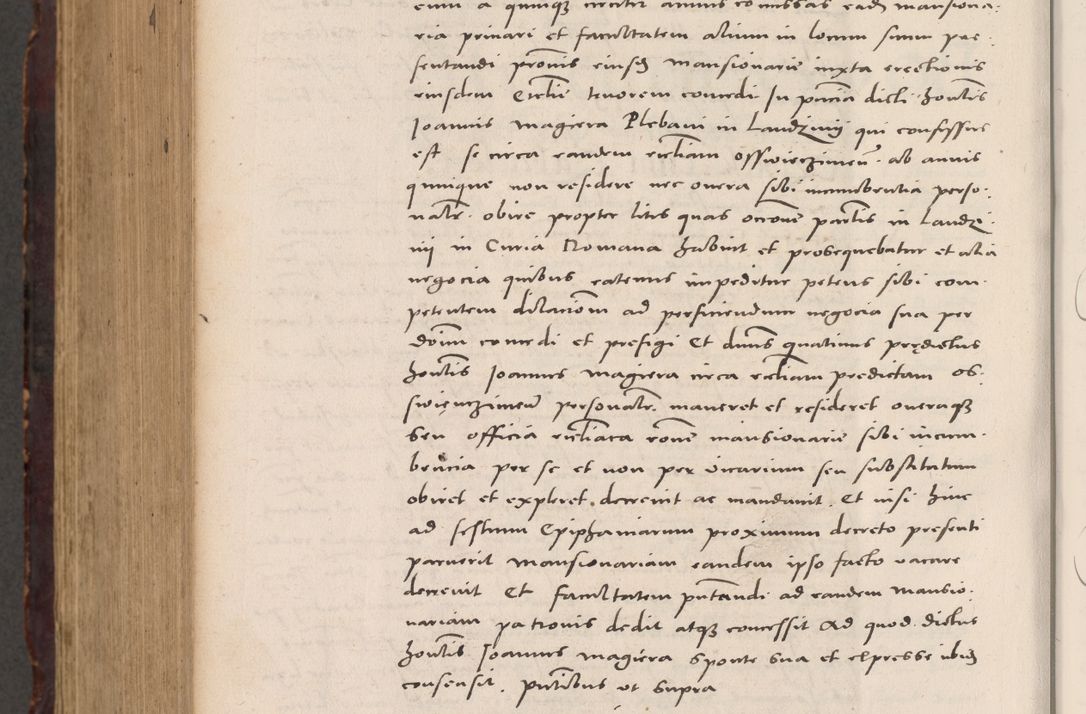 eum a quinqz circiter annis comissas eadem mansiona:
ria privari et facultatem alium in locum suum pre:
sentandi pronis eiusdem mansionarie iuxta erectionis
eiusdem Ecclie tenorem concedi In pncia dicti honlis
Joannis Magiera Plebani in Landzinij qui confessus
est se circa eandem eccliam osswieczimen. ab annis
quinque non residere nec onera sibi incumbentia perso:
naltr. obire propter lites quas occone parlis in Landzi:
nij in Curia Romana habuit et prosequebatur et alia
negocia quibus eatenus impeditur petens sibi com:
petentem dilacionem ad perficiendum negocia sua per
donum concedi et prefigi Et dnus quatinus prędictus
honlis Joannes Magiera circa eccliam predictam os:
swięnczimen personaltr. maneret et resideret oneraqz
seu officia ecclica rone mansionarie sibi incum:
bencia per se et non per vicarium seu substitutum
obiret et expleret decrevit ac mandavit. Et nisi hinc
ad festum Epiphaniarum proximum decreto presenti
paruerit mansionariam eandem ipso facto vacare
decrevit Et facultatem pntandi ad eandem mansio:
nariam patronis dedit atqz concessit Ad quod dictus
honlis Joannes Magiera sponte sua et expresse ibidem
consensit. pntibus ut supra